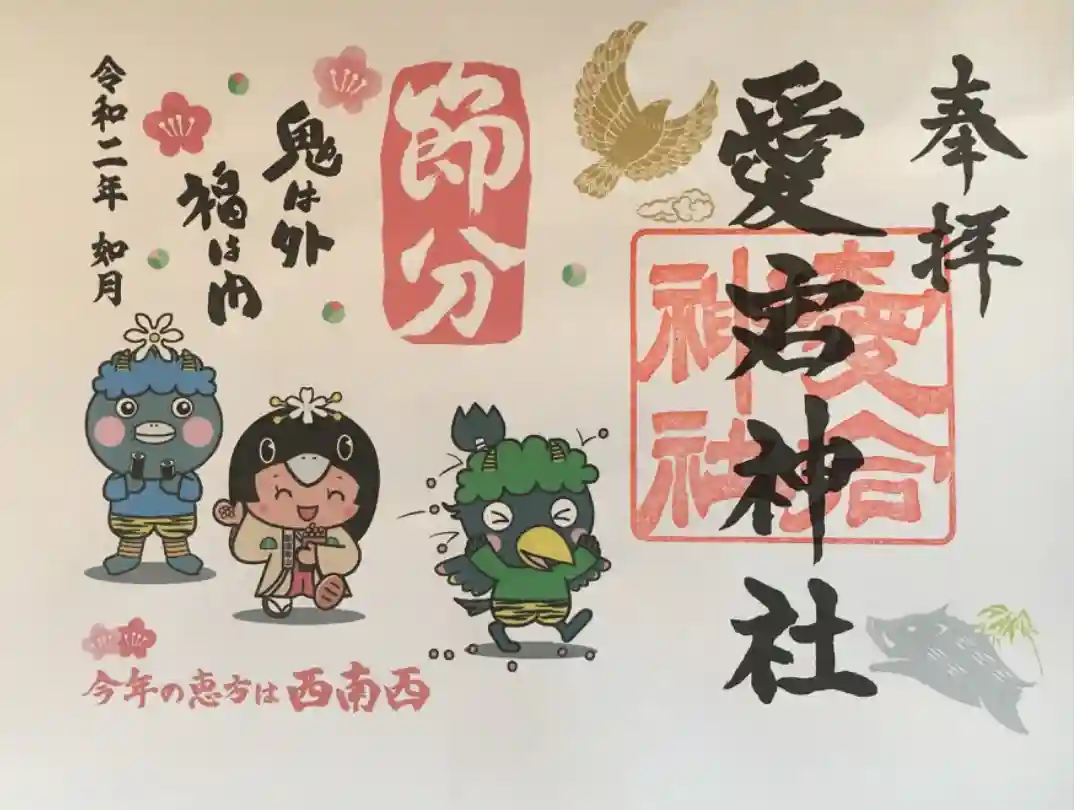 奉拝
愛宕神社
愛宕
神社
節分
鬼は外
福は内
令和二年 如月
今年の恵方は西南西